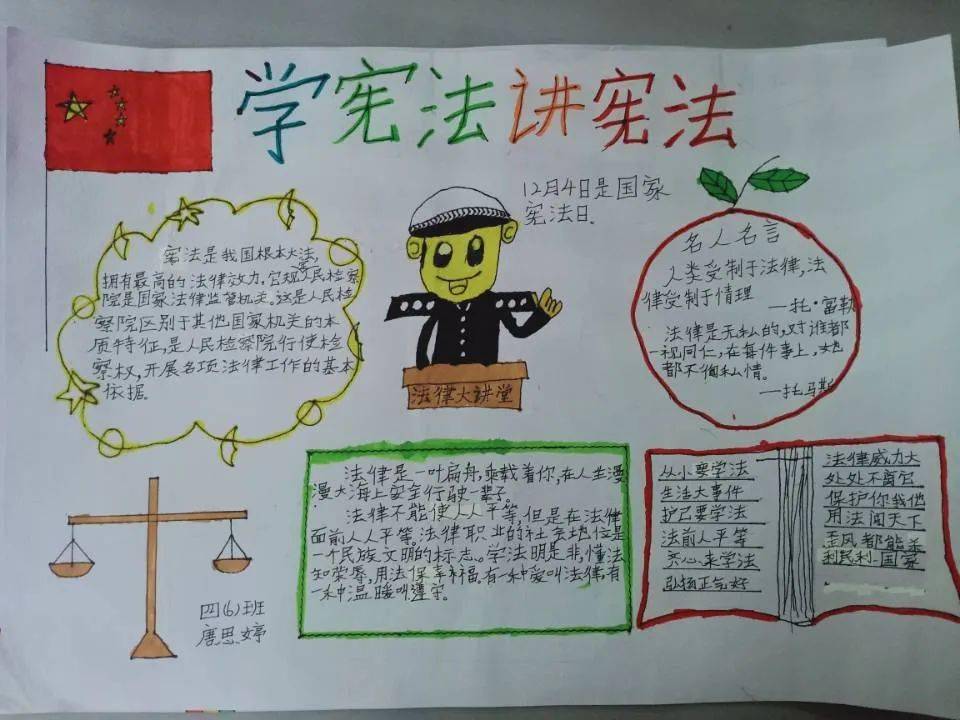 学宪法讲宪法
12月4日是国家
宪法日.
宪法是我国根本大法,
拥有最高的法律效力,宪规定人民检察
院是国家法律监督机关。这是人民检
察院区别于其他国家机关的本
质特征,是人民检察院行使检
察权,开展各项法律工作的基本
依据.
法律大讲堂
名人名言
人类受制于法律,法
律受制于情理
—托·富勒
法律是无私的,对谁都
一视同仁,在每件事上,她
都不徇私情。
—托马斯
法律是一叶扁舟,乘载着你,在人生漫
漫大海上安全行驶一辈子。
法律不能使人人平等,但是在法律
面前人人平等。法律职业的社会地位是
一个民族文明的标志。学法明是非,懂法
知荣辱,用法保幸福,有一种爱叫法律,有
一种温暖叫遵守。
从小要学法
生活大事件
护己要学法
法前人人平等
齐心来学法
弘扬正气好
法律威力大
处处不离它
保护你我他
用法闯天下
歪风都能杀
利民利国家
四(6)班
唐思婷